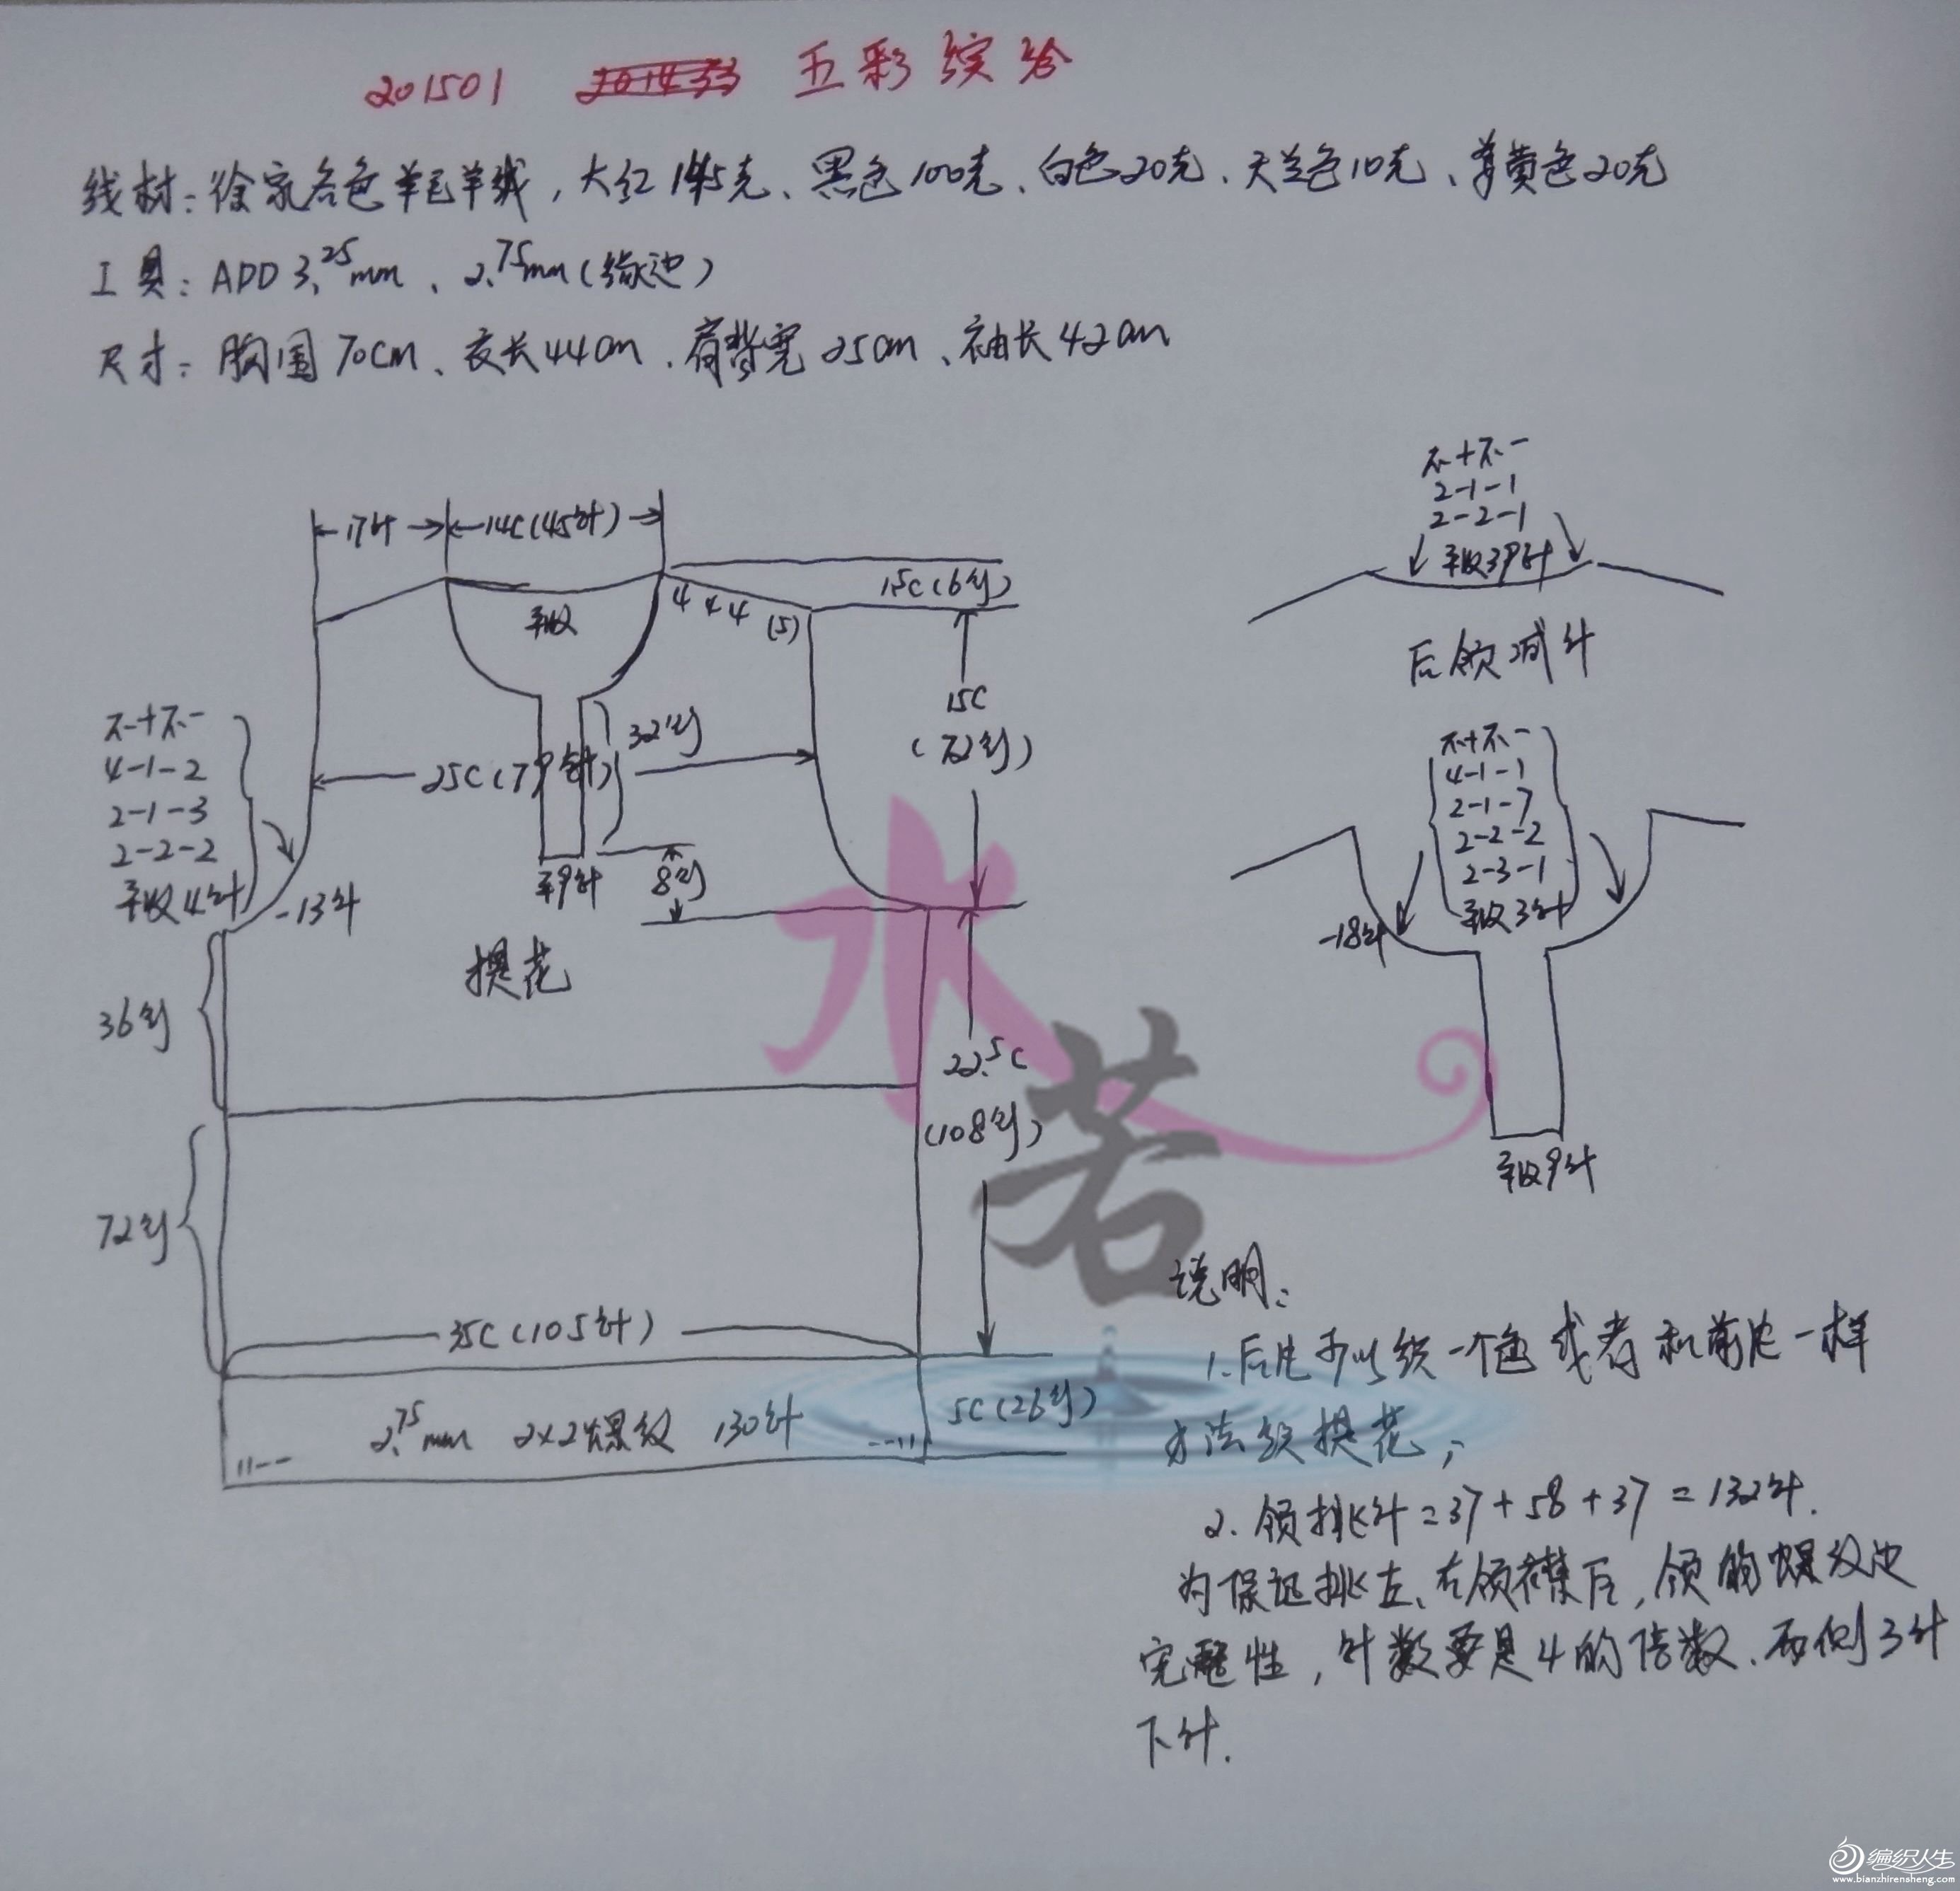 201501 五彩缤纷
线材：徐家各色羊毛羊绒，大红145克、黑色100克、白色20克、天兰色10克、姜黄色20克
工具：ADD 3.25mm、2.75mm（缘边）
尺寸：胸围70cm、衣长44cm、肩背宽25cm、袖长42cm
17针
14C(45针)
平收
4 4 4 (5)
1.5C(6行)
15C
(72行)
不十不一
4-1-2
2-1-3
2-2-2
平收4针
-13针
25C(79针)
32行
平9针
8行
提花
36行
72行
22.5C
(108行)
35C(105针)
2.75mm 2×2螺纹 130针
5C(26行)
不十不一
2-1-1
2-2-1
平收39针
后领减针
不十不一
4-1-1
2-1-7
2-2-2
2-3-1
平收3针
-18针
平收9针
说明：
1.后片可以织一个色或者和前片一样
方法织提花；
2.领挑针=37+58+37=132针.
为保证挑左、右领襟后，领的螺纹边
完整性，针数要是4的倍数、两侧3针
下针.
水若
编织人生
www.bianzhirensheng.com